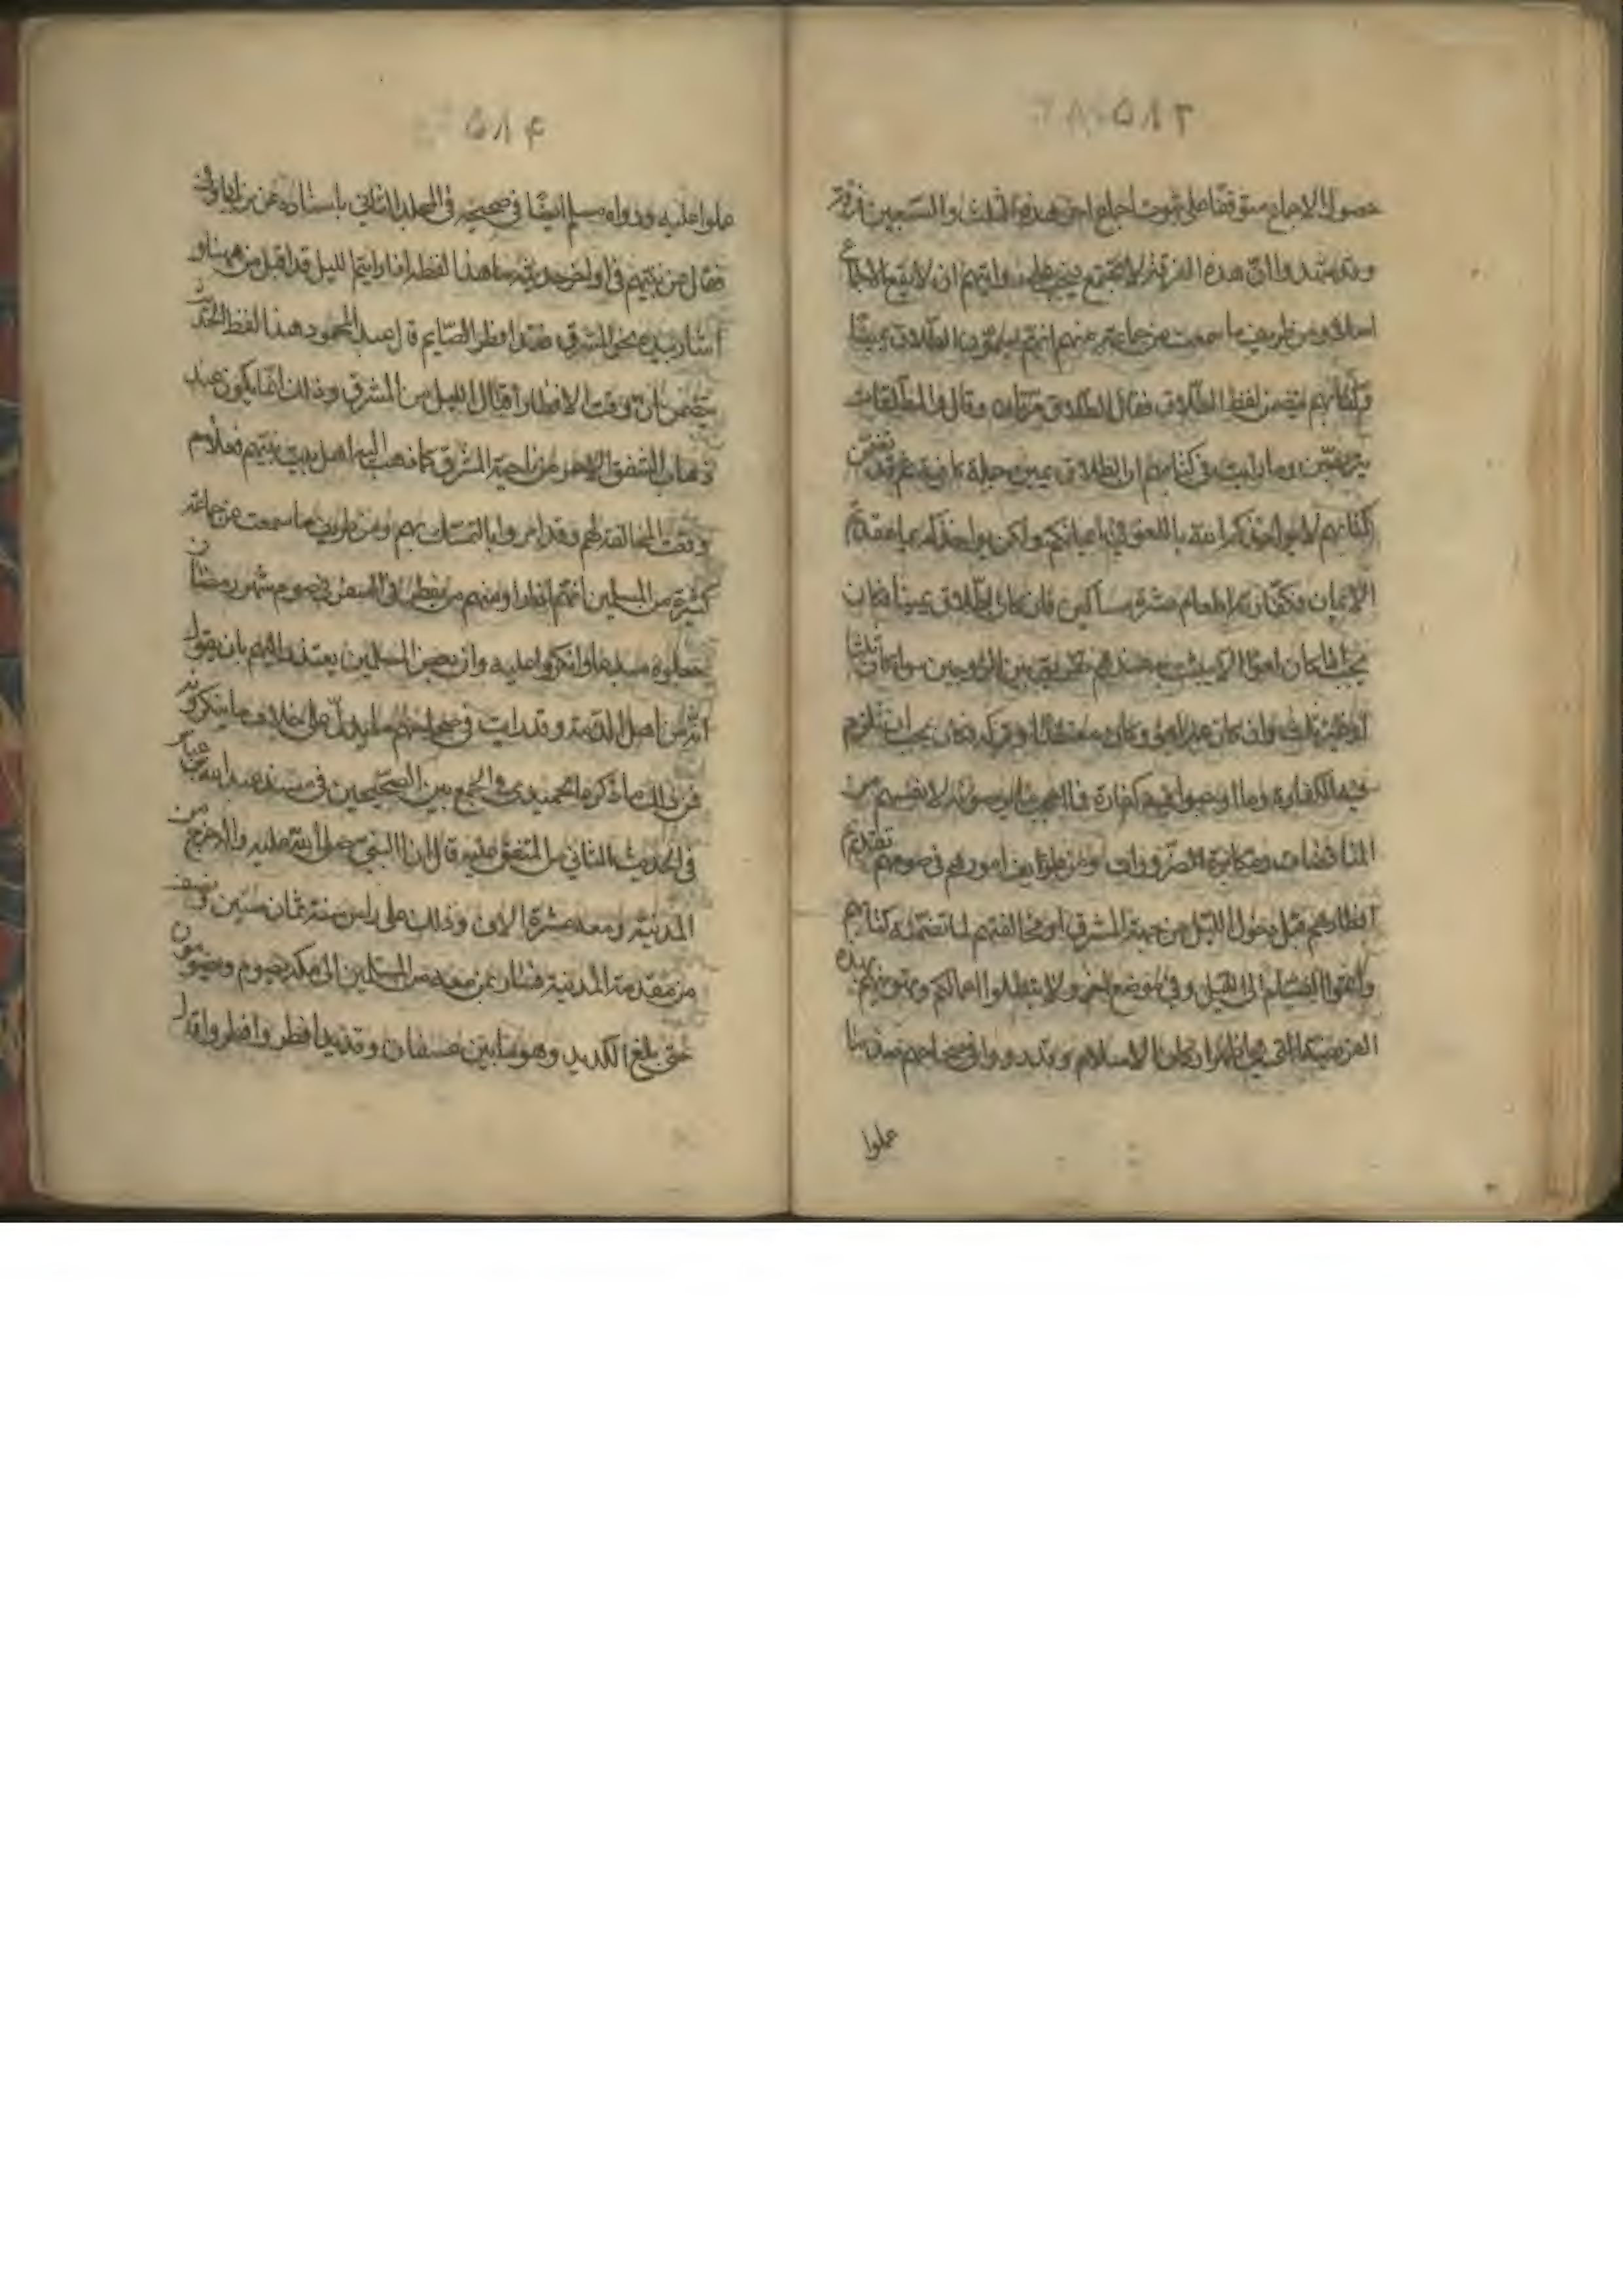 ۵۸۳
حصول الاجماع متوقفا على ثبوت اجماع احق هذه الثلث والسبعين فرقة
وقد شهدوا ان هذه الفرقة لا تجتمع فيجب على قولهم ان لا يقع الاجماع
اصلا ومن طريف ما سمعت من جماعة منهم انهم يسمون الطلاق يمينا
وكتابهم يتضمن لفظ الطلاق فقال الطلاق مرتان وقال والمطلقات
يتربصن وما رايت في كتابهم ان الطلاق يمين تضمن
كتابهم لا يؤاخذكم الله باللغو في ايمانكم ولكن يؤاخذكم بما عقدتم
الايمان فكفارته اطعام عشرة مساكين فان كان الطلاق يمينا فكان
يجب اذا كان لغوا ان لا يثبت به عندهم تفريق بين الزوجين سواء كان ثلثا
او غير ثلث وان كان غير لغو وكان معتقدا فكان يجب ان تلزم
فيه الكفارة وما اوجبوا فيه كفارة لانفسهم من
المناقضات ومكابرة الضرورات ومن طرايف امورهم في صومهم تقديم
افطارهم قبل دخول الليل من جهة المشرق او مخالفتهم لما تضمنه كتابهم
واتموا الصيام الى الليل وفي موضع اخر ولا تبطلوا اعمالكم وتهوينهم بهذه
الفريضة التي هي احد اركان الاسلام وقد رووا في صحاحهم ضد ما
عملوا
۵۸۴
عملوا عليه ورواه مسلم ايضا في صحيحه في المجلد الثاني باسناده عن ابن ابي اوفى
فقال عن نبيهم في اواخر حديثه ما هذا لفظه اذا رايتم الليل قد اقبل من ههنا و
اشار بيده نحو المشرق فقد افطر الصائم قال عبد المحمود هذا لفظ الحديث
يتضمن ان وقت الافطار اقبال الليل من المشرق وذلك انما يكون عند
ذهاب الشفق الاحمر من ناحية المشرق كما ذهب اليه اهل بيت نبيهم فعلام
وقعت المخالفة لهم وقد امروا بالتمسك بهم ومن طريف ما سمعت عن جماعة
كثيرة من المسلمين انهم اذا راوا منهم من يفطر في السفر في صوم شهر رمضان
جعلوه مبدعا وانكروا عليه وان بعض المسلمين يعتذر اليهم بان يقول
انه من اهل الذمة وقد رايت في صحاحهم ما يدل على خلاف ما ينكرونه
فمن ذلك ما ذكره الحميدي في الجمع بين الصحيحين في مسند عبد الله بن عباس
في الحديث الثاني من المتفق عليه قال ان النبي صلى الله عليه واله خرج من
المدينة ومعه عشرة الاف وذلك على راس سنة ثمان سنين ونصف
من مقدمه المدينة فسار بمن معه من المسلمين الى مكة يصوم ويصومون
حتى بلغ الكديد وهو ما بين عسفان وقديد افطر وافطروا قال